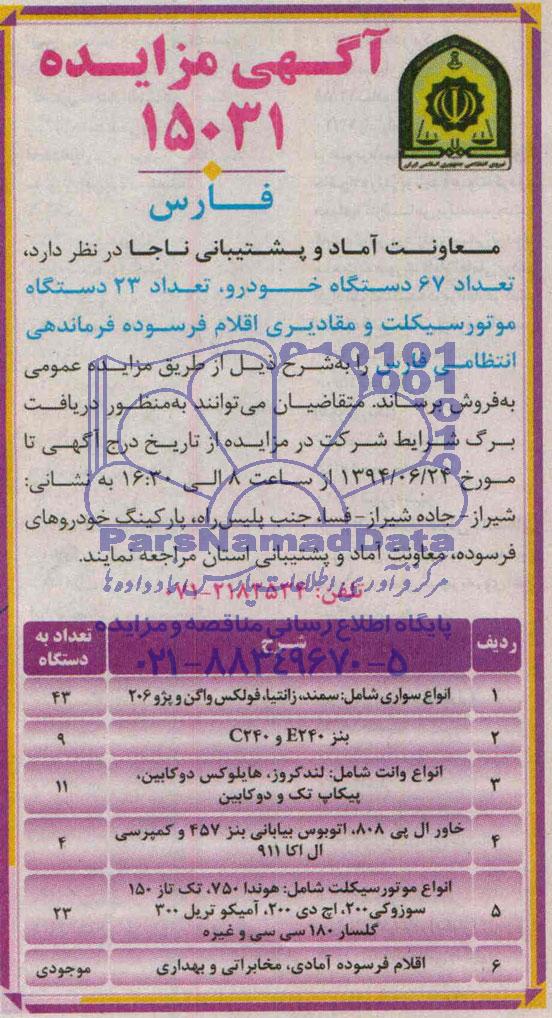 آگهی مزایده
۱۵۰۳۱
فارس
نیروی انتظامی جمهوری اسلامی ایران
معاونت آماد و پشتیبانی ناجا در نظر دارد،
تعداد ۶۷ دستگاه خودرو، تعداد ۲۳ دستگاه
موتورسیکلت و مقادیری اقلام فرسوده فرماندهی
انتظامی فارس را به‌شرح ذیل از طریق مزایده عمومی
به‌فروش برساند. متقاضیان می‌توانند به‌منظور دریافت
برگ شرایط شرکت در مزایده از تاریخ درج آگهی تا
مورخ ۱۳۹۴/۰۶/۲۴ از ساعت ۸ الی ۱۶:۳۰ به نشانی:
شیراز- جاده شیراز- فسا، جنب پلیس‌راه، پارکینگ خودروهای
فرسوده، معاونت آماد و پشتیبانی استان مراجعه نمایند.
ParsNamadData
مرکز فرآوری اطلاعات پارس نماد داده‌ها
تلفن: ۲۱۸۳۵۳۴-۰۷۱
پایگاه اطلاع رسانی مناقصه و مزایده
۰۲۱-۸۸۳۴۹۶۷۰-۵
ردیف شرح تعداد به دستگاه
۱ انواع سواری شامل: سمند، زانتیا، فولکس واگن و پژو ۲۰۶ ۴۳
۲ بنز E۲۴۰ و C۲۴۰ ۹
۳ انواع وانت شامل: لندکروز، هایلوکس دوکابین،
پیکاپ تک و دوکابین ۱۱
۴ خاور ال پی ۸۰۸، اتوبوس بیابانی بنز ۴۵۷ و کمپرسی
ال اکا ۹۱۱ ۴
۵ انواع موتورسیکلت شامل: هوندا ۷۵۰، تک تاز ۱۵۰
سوزوکی۲۰۰، اچ دی ۲۰۰، آمیکو تریل ۳۰۰
گلسار ۱۸۰ سی سی و غیره ۲۳
۶ اقلام فرسوده آمادی، مخابراتی و بهداری موجودی